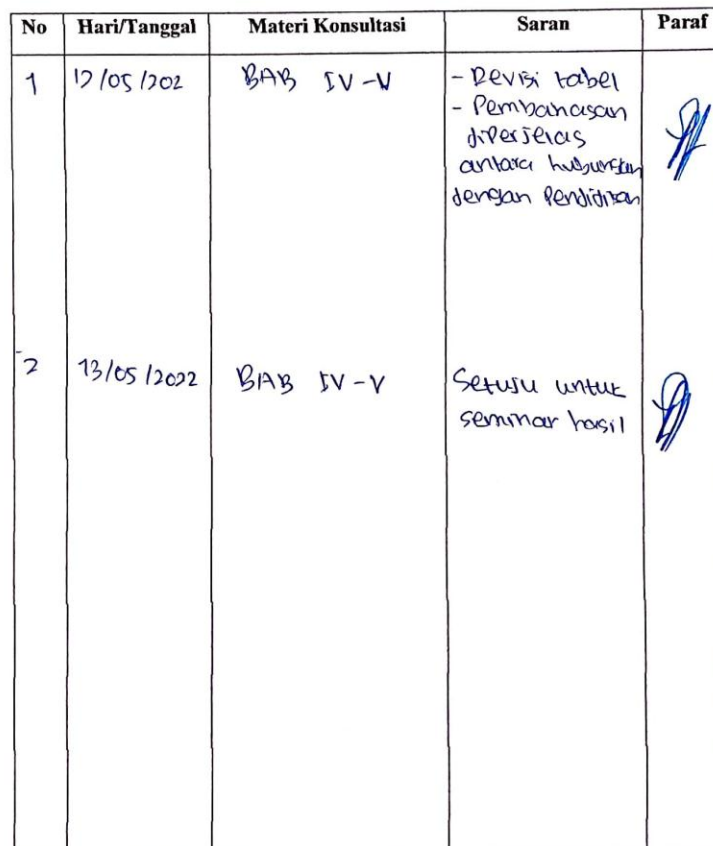 No Hari/Tanggal Materi Konsultasi Saran Paraf
1 12/05/202 BAB IV-V - Revisi tabel
- Pembahasan
diperjelas
antara hubungan
dengan Pendidikan
2 13/05/2022 BAB IV-V Setuju untuk
seminar hasil